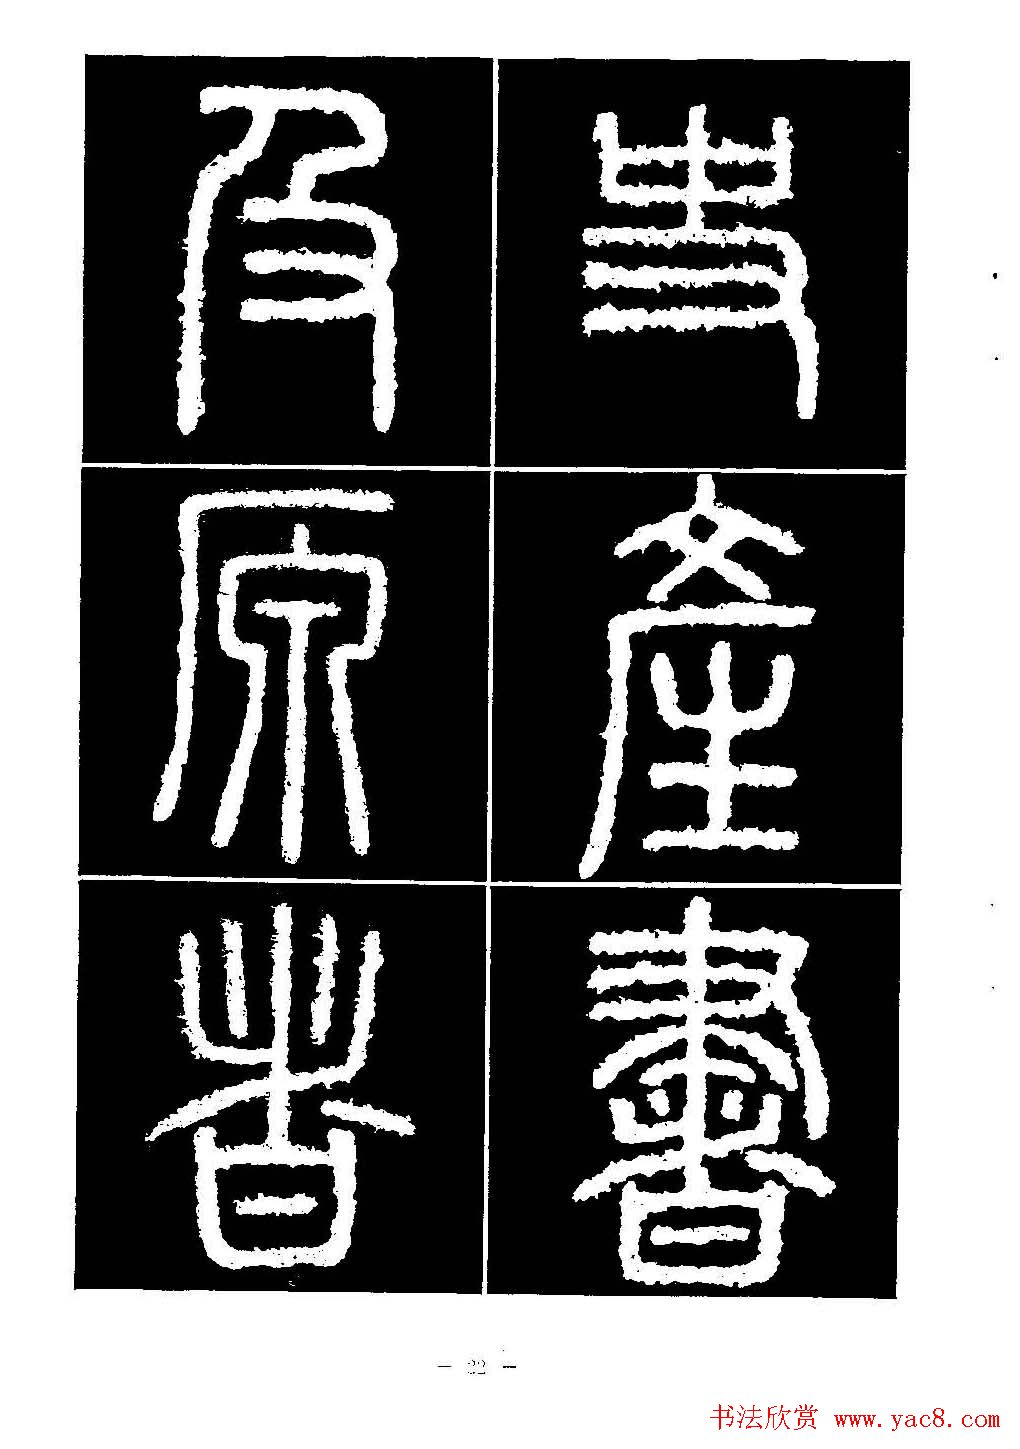 史產書
及原者
- 22 -
书法欣赏 www.yac8.com